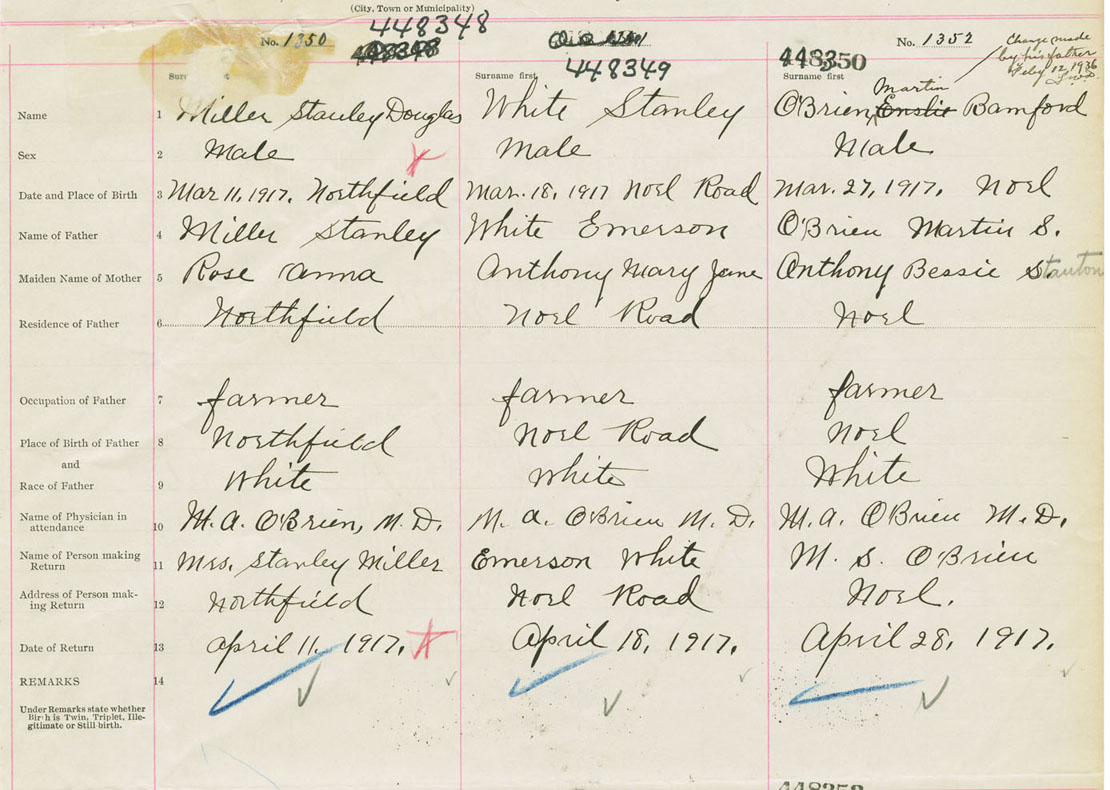 (City, Town or Municipality)
448348
No. 1350
448349
No. 1352
448350
Change made
by his father
Feby 12, 1936
Surname first
Surname first
Martin
Name 1 Miller Stanley Douglas White Stanley O'Brien, Emslie Bamford
Sex 2 Male Male Male
Date and Place of Birth 3 Mar 11, 1917. Northfield Mar. 18, 1917 Noel Road Mar. 27, 1917. Noel
Name of Father 4 Miller Stanley White Emerson O'Brien Martin S.
Maiden Name of Mother 5 Rose Anna Anthony Mary Jane Anthony Bessie Stanton
Residence of Father 6 Northfield Noel Road Noel
Occupation of Father 7 farmer farmer farmer
Place of Birth of Father 8 Northfield Noel Road Noel
and
Race of Father 9 White White White
Name of Physician in
attendance 10 M. A. O'Brien, M. D. M. A. O'Brien M. D. M. A. O'Brien M. D.
Name of Person making
Return 11 Mrs. Stanley Miller Emerson White M. S. O'Brien
Address of Person mak-
ing Return 12 Northfield Noel Road Noel.
Date of Return 13 April 11, 1917. April 18, 1917. April 28, 1917.
REMARKS 14
Under Remarks state whether
Birth is Twin, Triplet, Ille-
gitimate or Still birth.